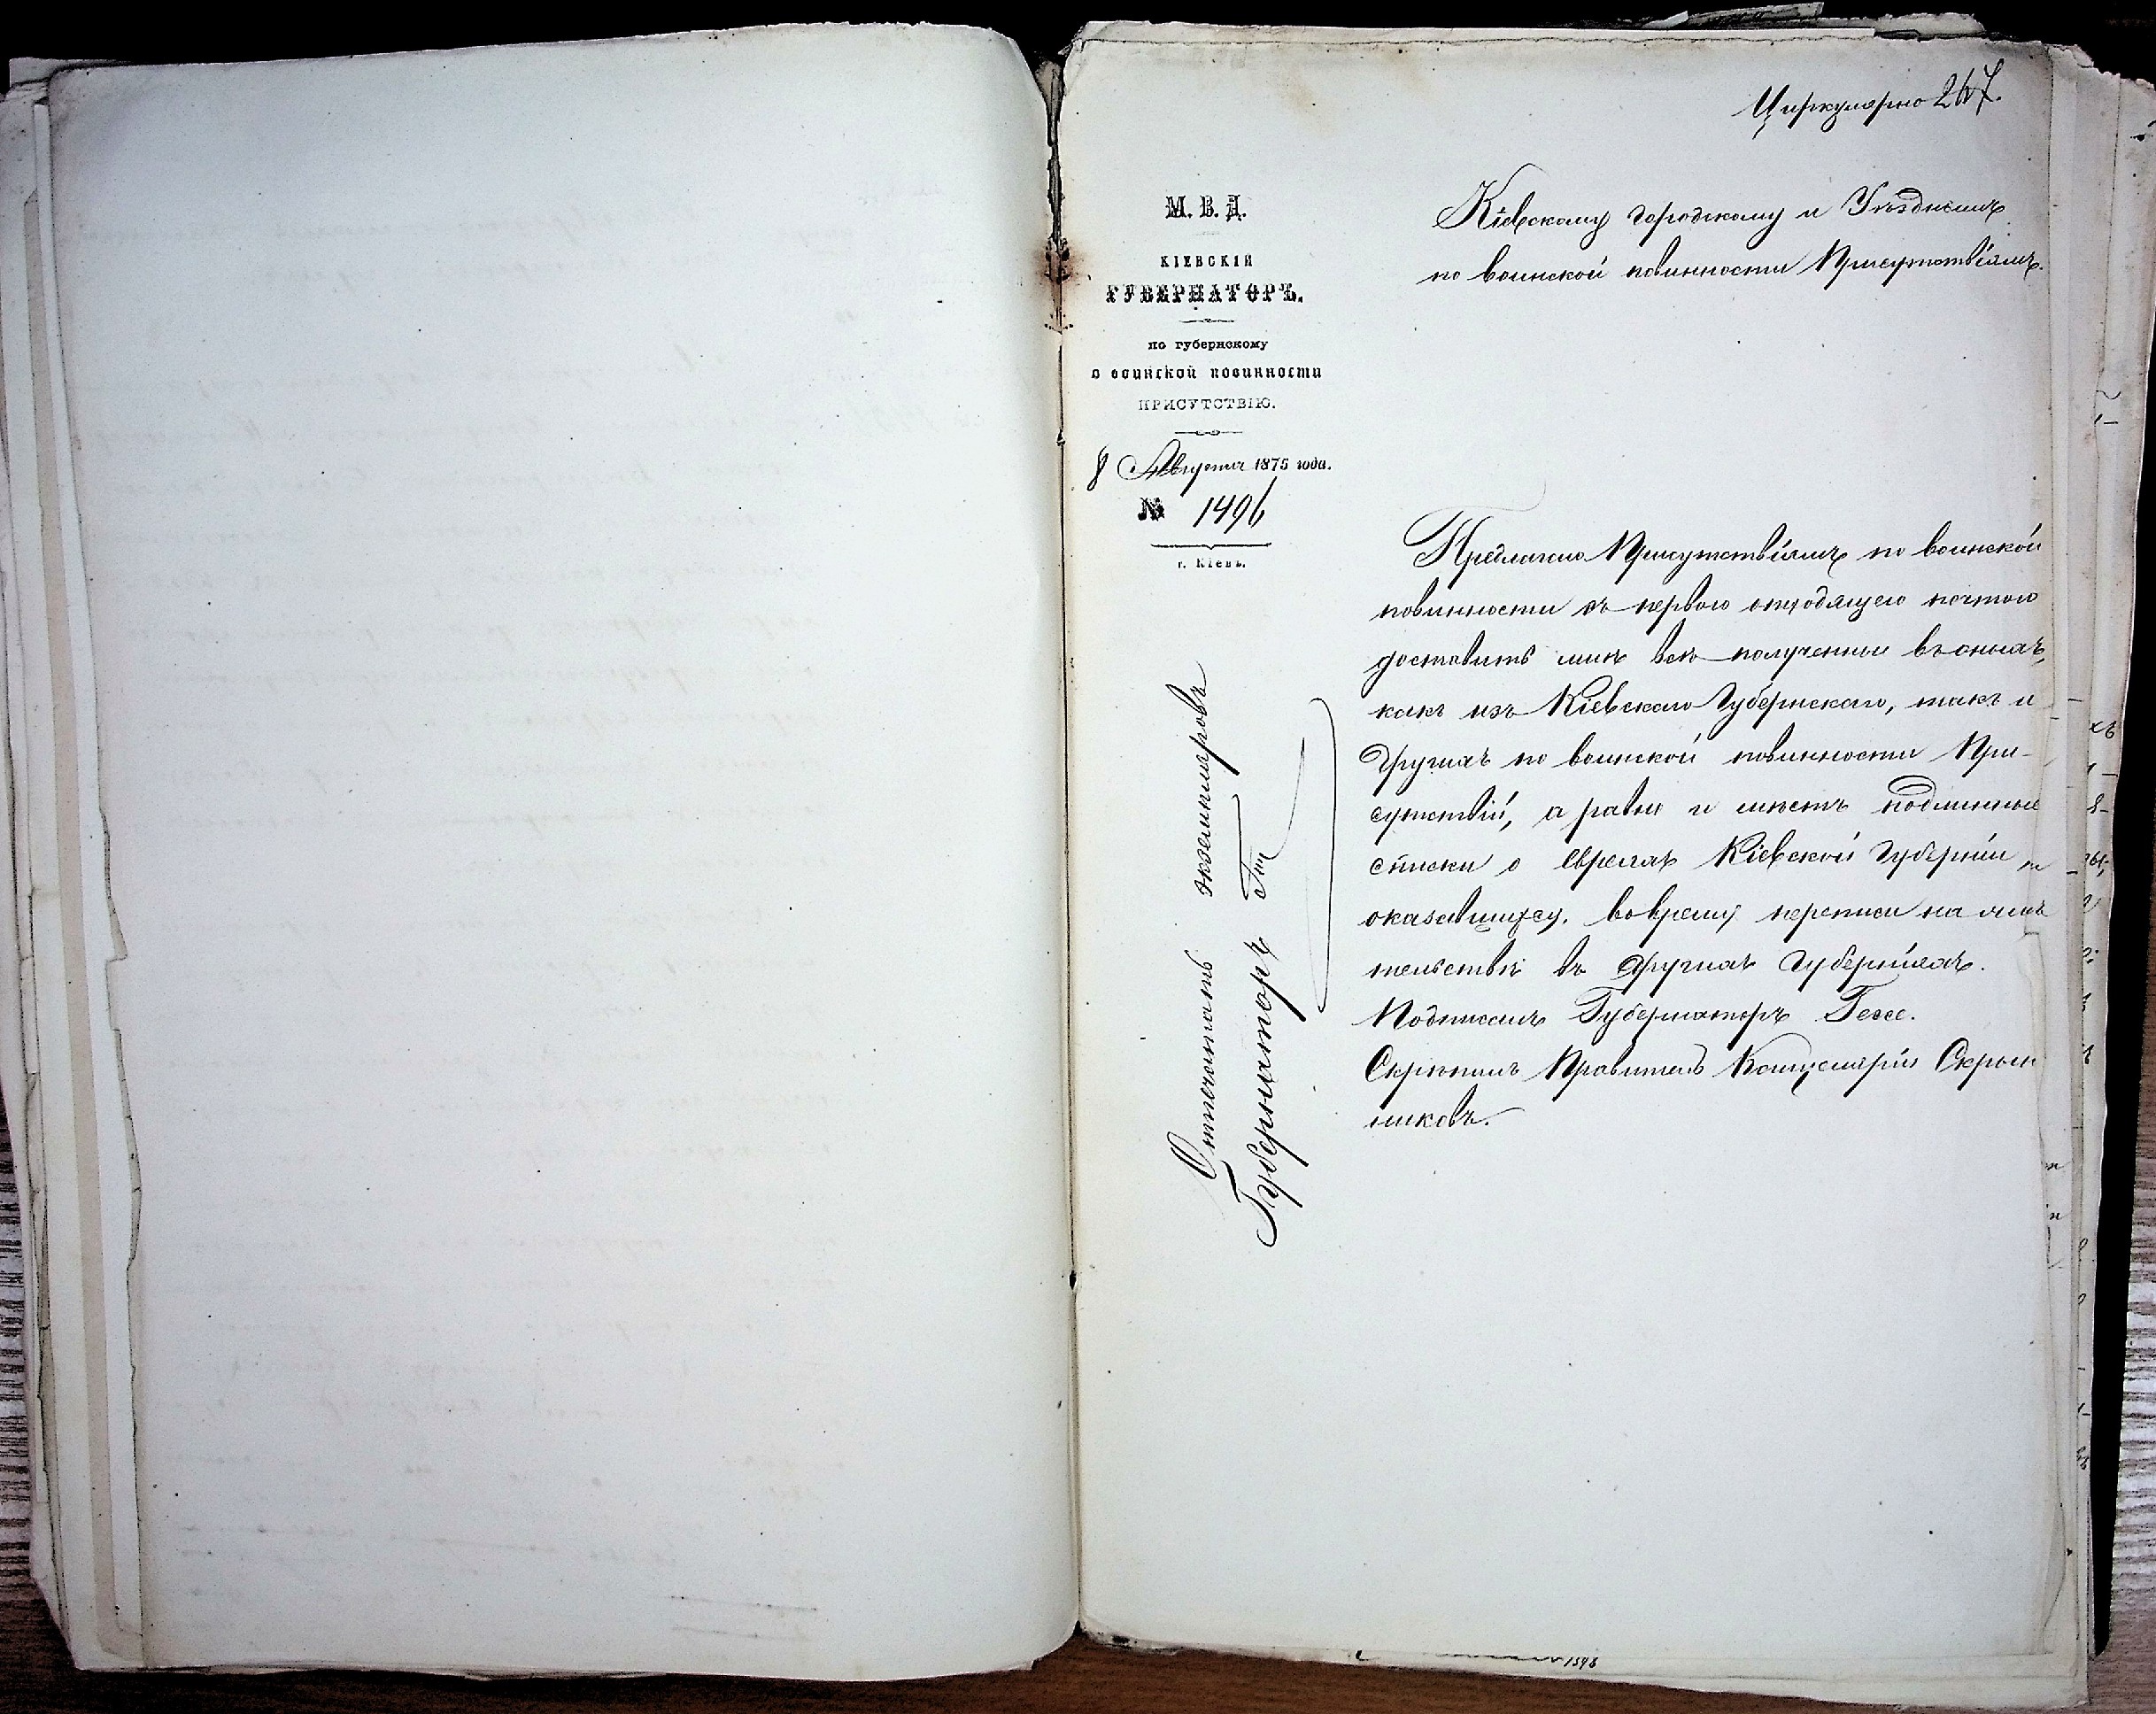 Циркулярно 267.
М. В. Д.
КІЕВСКІЙ
ГУБЕРНАТОРЪ.
по губернскому
о воинской повинности
ПРИСУТСТВІЮ.
8 Августа 1875 года.
№ 1496
г. Кіевъ.
Кіевскому городскому и Уѣзднымъ
по воинской повинности Присутствіямъ.
Предлагаю Присутствіямъ по воинской
повинности съ первою отходящею почтою
доставить мнѣ всѣ полученные въ оныхъ,
какъ изъ Кіевскаго Губернскаго, такъ и
другихъ по воинской повинности При-
сутствій, а равно и мѣстъ подлинные
списки о евреяхъ Кіевской Губерніи,
оказавшихся во время переписи на жи
тельствѣ въ другихъ Губерніяхъ.
Подписалъ Губернаторъ Гессе.
Скрѣпилъ Правитель Канцеляріи Скрын
никовъ.
Отпечатать экземпляровъ
Губернаторъ